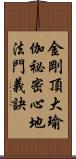 金剛頂大瑜
伽祕密心地
法門義訣